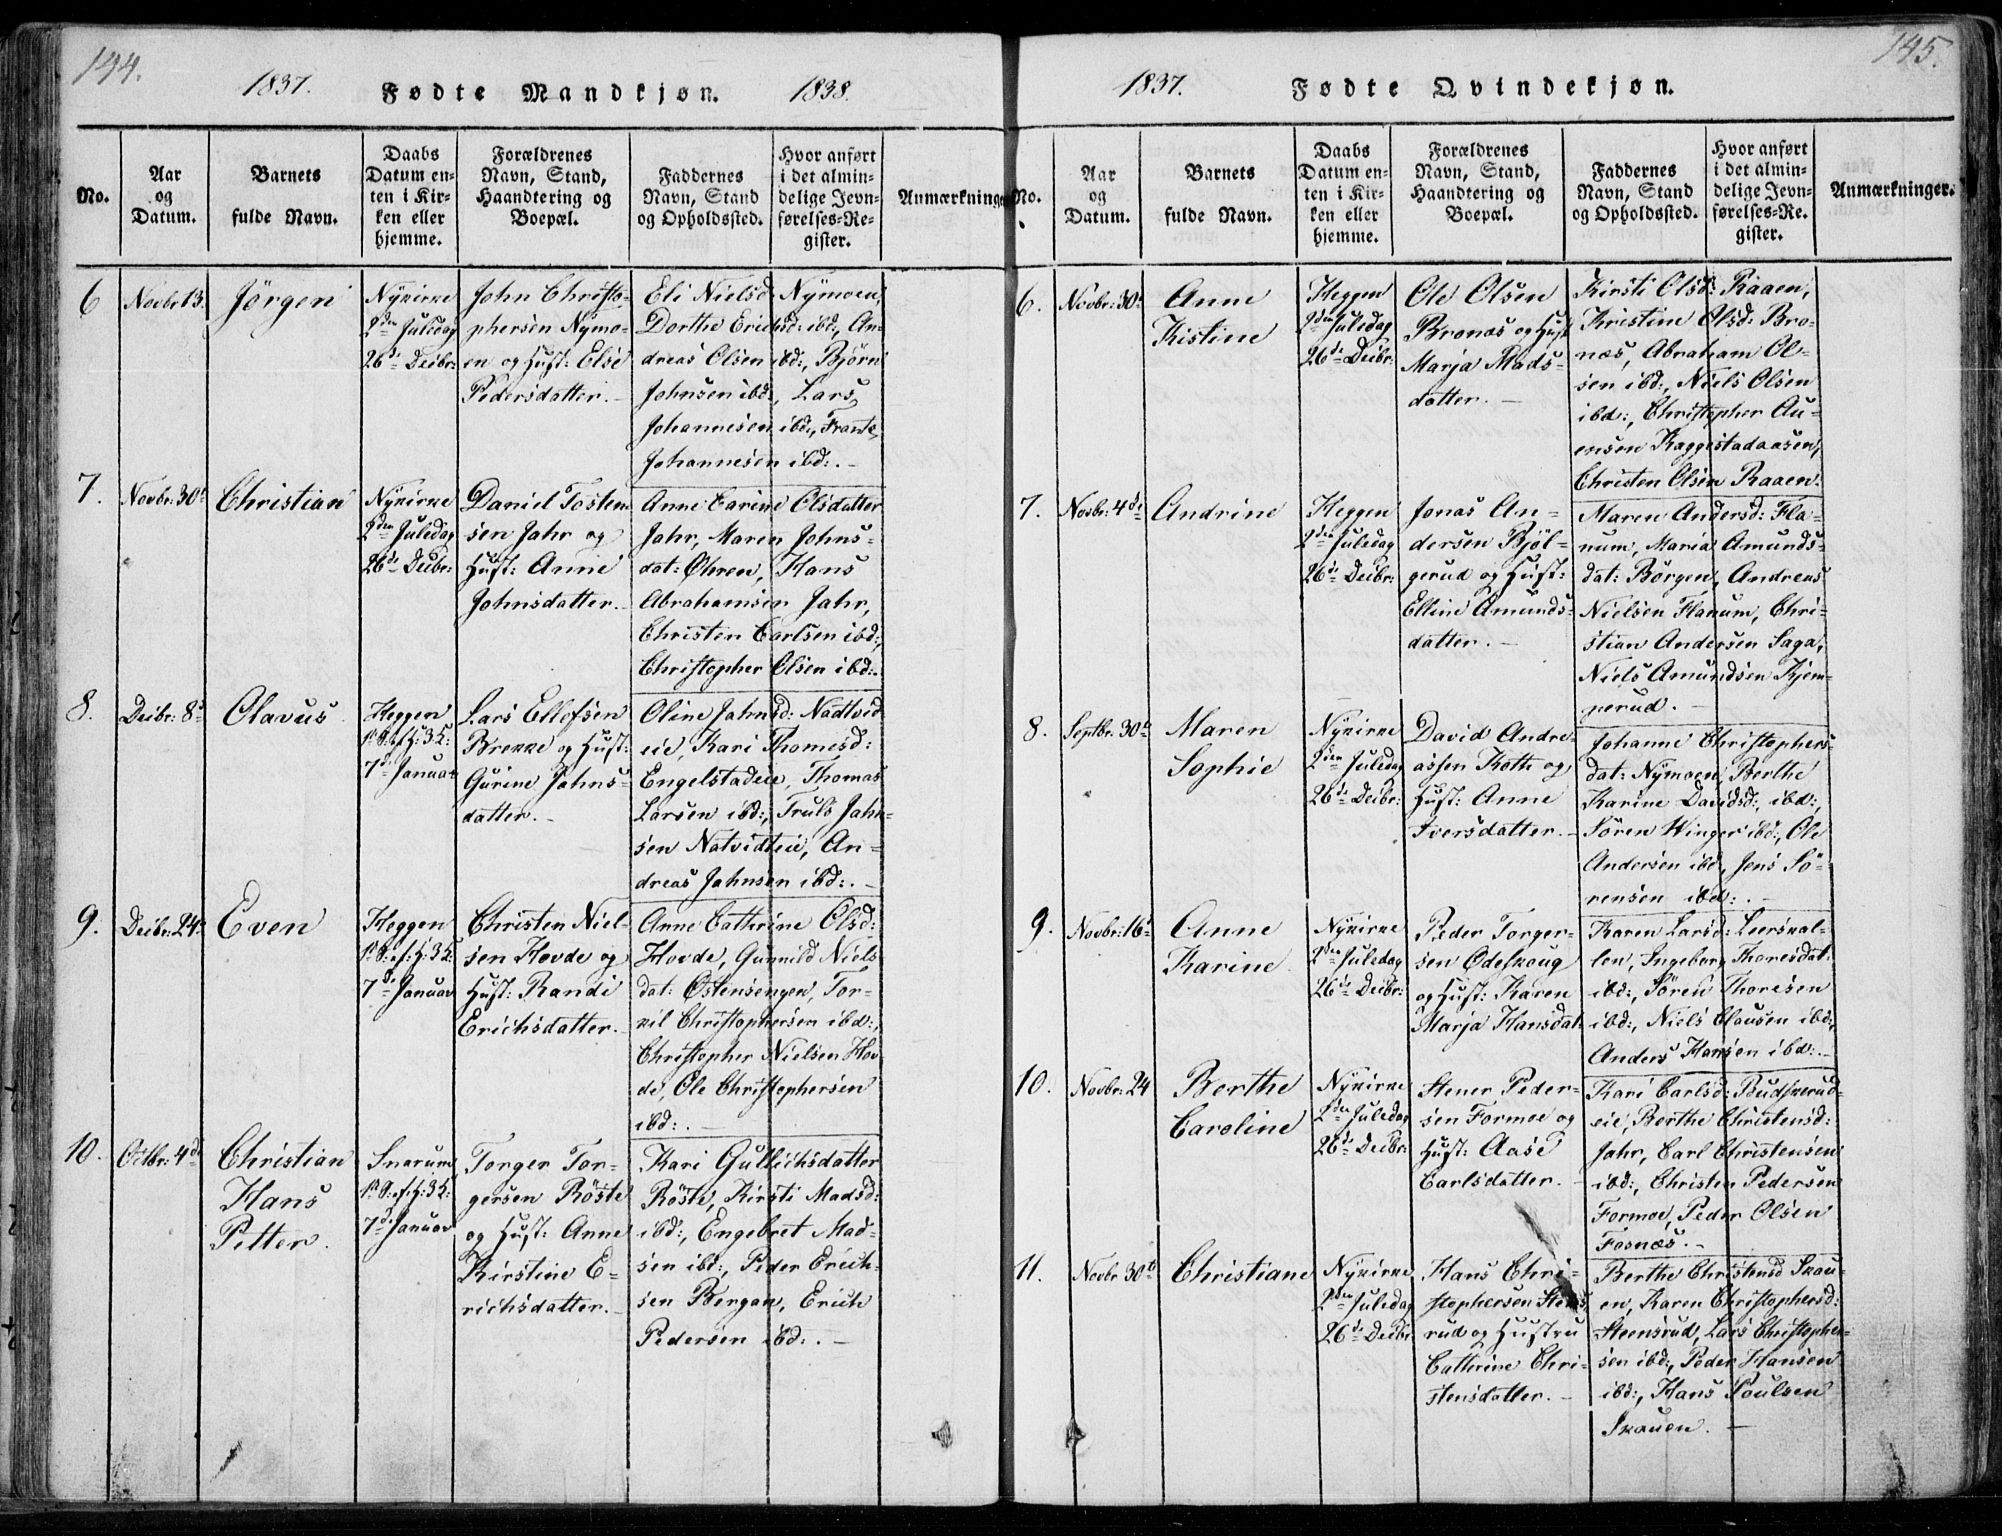 144.
1837. Fødte Mandkjøn. 1838.
No.
Aar
og
Datum.
Barnets
fulde Navn.
Daabs
Datum en-
ten i Kir-
ken eller
hjemme.
Forældrenes
Navn, Stand,
Haandtering og
Boepæl.
Faddernes
Navn, Stand
og Opholdssted.
Hvor anført
i det almin-
delige Jevn-
førelses-Re-
gister.
Anmærkninge
6
Novbr 13
Jörgen
Nykirke
2den Juledag
26de Decbr:
John Christo-
phersen Nymo-
en og Hust: Else
Pedersdatter.
Eli Nielsd: Nymoen,
Dorthe Ericksd: ibd:, An-
dreas Olsen ibd:, Björn
Johnsen ibd:, Lars
Johannesen ibd:, Frants
Johannesen ibd:.
7.
Novbr: 30te
Christian
Nykirke
2den Juledag
26de Decbr:
Daniel Tosten-
sen Jahr og
Hust: Anne
Johnsdatter.
Anne Carine Olsdatter
Jahr, Maren Johns-
dat: Øhren, Hans
Abrahamsen Jahr,
Christen Carlsen ibd:,
Christopher Olsen ibd:.
8.
Decbr: 8de
Olavus
Heggen
1te S: ef: H: 3 K:
7de Januar
Lars Ellefsen
Brekke og Hust:
Gurine Jahns-
datter.
Oline Jahnsd: Nadtvid-
eie, Kari Thomesd:
Engelstadeie, Thomas
Larsen ibd:, Truls Jahn-
sen Natvidteie, An-
dreas Jahnsen ibd:.
9.
Decbr: 24de
Even
Heggen
1te S: ef: H: 3 K:
7de Januar
Christen Niel-
sen Hovde og
Hust: Randi
Erichsdatter.
Anne Cathrine Olsd:
Hovde, Gunnild Niels
dat: Østensengen, Tor-
kil Christophersen ibd:,
Christopher Nielsen Hov
de, Ole Christophersen
ibd:.
10.
Octbr: 4de
Christian
Hans
Petter.
Snarum
1te S: ef: H: 3 K:
7de Januar
Torger Tor-
gersen Röste
og Hust: Anne
Kirstine E-
richsdatter.
Kari Gullichsdatter
Röste, Kirsti Madsd:
ibd:, Engebret Mad-
sen ibd:, Peder Erich-
sen Bergan, Erich
Pedersen ibd:.
145.
1837. Fødte Qvindekjøn.
No.
Aar
og
Datum.
Barnets
fulde Navn.
Daabs
Datum en-
ten i Kir-
ken eller
hjemme.
Forældrenes
Navn, Stand,
Haandtering og
Boepæl.
Faddernes
Navn, Stand
og Opholdssted.
Hvor anført
i det almin-
delige Jevn-
førelses-Re-
gister.
Anmærkninger.
6.
Novbr: 30te
Anne
Kistine
Heggen
2den Juledag
26de Decbr:
Ole Olsen
Bronæs og Hust
Marja Mads-
datter.
Kirsti Olsd: Raaen,
Kristine Olsd: Bro-
næs, Abraham Ol-
sen ibd:, Niels Olsen
ibd:, Christopher Au-
ensen Kaggestadaasen,
Christen Olsen Raaen.
7.
Novbr: 4de
Andrine
Heggen
2den Juledag
26de Decbr:
Jonas An-
dersen Bjöl-
gerud og Hust:
Elline Amunds-
datter.
Maren Andersd: Fla-
num, Maria Amunds-
dat: Börgen, Andreas
Nielsen Flanum, Chri-
stian Andersen Saga,
Niels Amundsen Kjem-
perud.
8.
Septbr: 30te
Maren
Sophie
Nykirke
2den Juledag
26de Decbr:
David Andre-
assen Kothe og
Hust: Anne
Iversdatter.
Johanne Christophers-
dat: Nymoen, Berthe
Karine Davidsd:, ibd:,
Sören Winger ibd:, Ole
Andersen ibd:, Jens Sö-
rensen ibd:.
9.
Novbr: 16de
Anne
Karine.
Nykirke
2den Juledag
26de Decbr:
Peder Torger-
sen Ødeskoug
og Hust: Karen
Marja Hansdat:
Karen Larsd: Leerskal-
len, Ingeborg Thoresdat:
ibd:, Sören Thoresen
ibd:, Niels Clausen ibd:,
Anders Hansen ibd:.
10.
Novbr: 24
Berthe
Caroline
Nykirke
2den Juledag
26de Decbr:
Stener Peder-
sen Formoe og
Hust: Aase
Carlsdatter.
Kari Carlsd: Budskerud-
eie, Berthe Christensd:
Jahr, Carl Christensen
ibd:, Christen Pedersen
Formoe, Peder Olsen
Fosnæs.
11.
Novbr 30te
Christiane
Nykirke
2den Juledag
26de Decbr
Hans Chri-
stophersen Steens
rud og Hustru
Cathrine Chri-
stensdatter.
Berthe Christensd Skau-
en, Karen Christophersd:
Steensrud, Lars Christopher-
sen ibd:, Peder Hansen
ibd:, Hans Poulsen
Skauen.